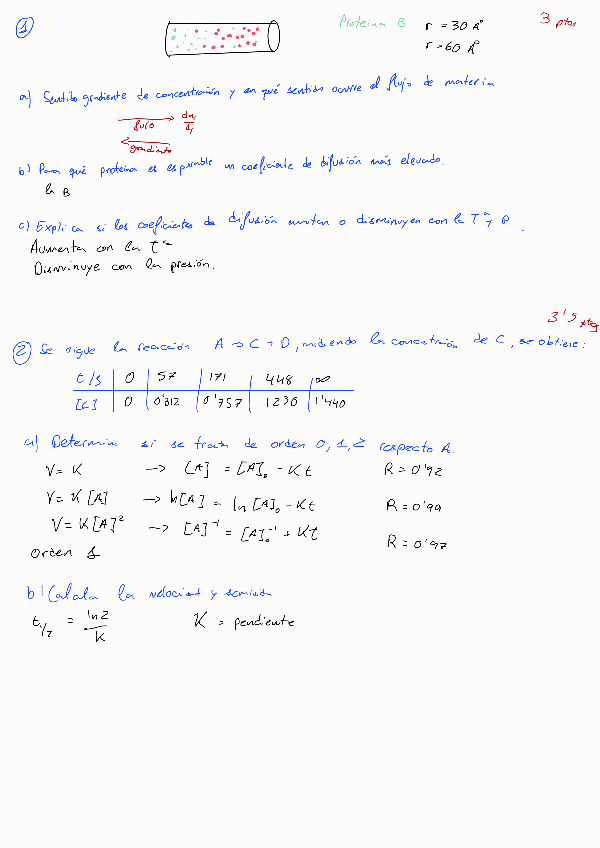 1
Proteina B r = 30 Å
r = 60 Å
3 ptos
a) Sentido gradiente de concentración y en qué sentido ocurre el flujo de materia
flujo
gradiente
b) Para qué proteina es esperable un coeficiente de difusión más elevado.
la B
c) Explica si los coeficientes de difusión aumentan o disminuyen con la Tª y P.
Aumenta con la tª
Disminuye con la presión.
3'5 ptos
2 Se sigue la reacción A → C + D, midiendo la concentración de C, se obtiene:
t/s 0 57 171 448 ∞
[C] 0 0'312 0'757 1230 1'440
a) Determina si se trata de orden 0, 1, 2 respecto A.
V = K → [A] = [A]₀ - Kt R = 0'92
V = K [A] → ln[A] = ln [A]₀ - Kt R = 0'99
V = K[A]² → [A]⁻¹ = [A]₀⁻¹ + Kt R = 0'97
orden 1
b) Calcula la velocidad y
t 1/2 = ln2/K K = pendiente